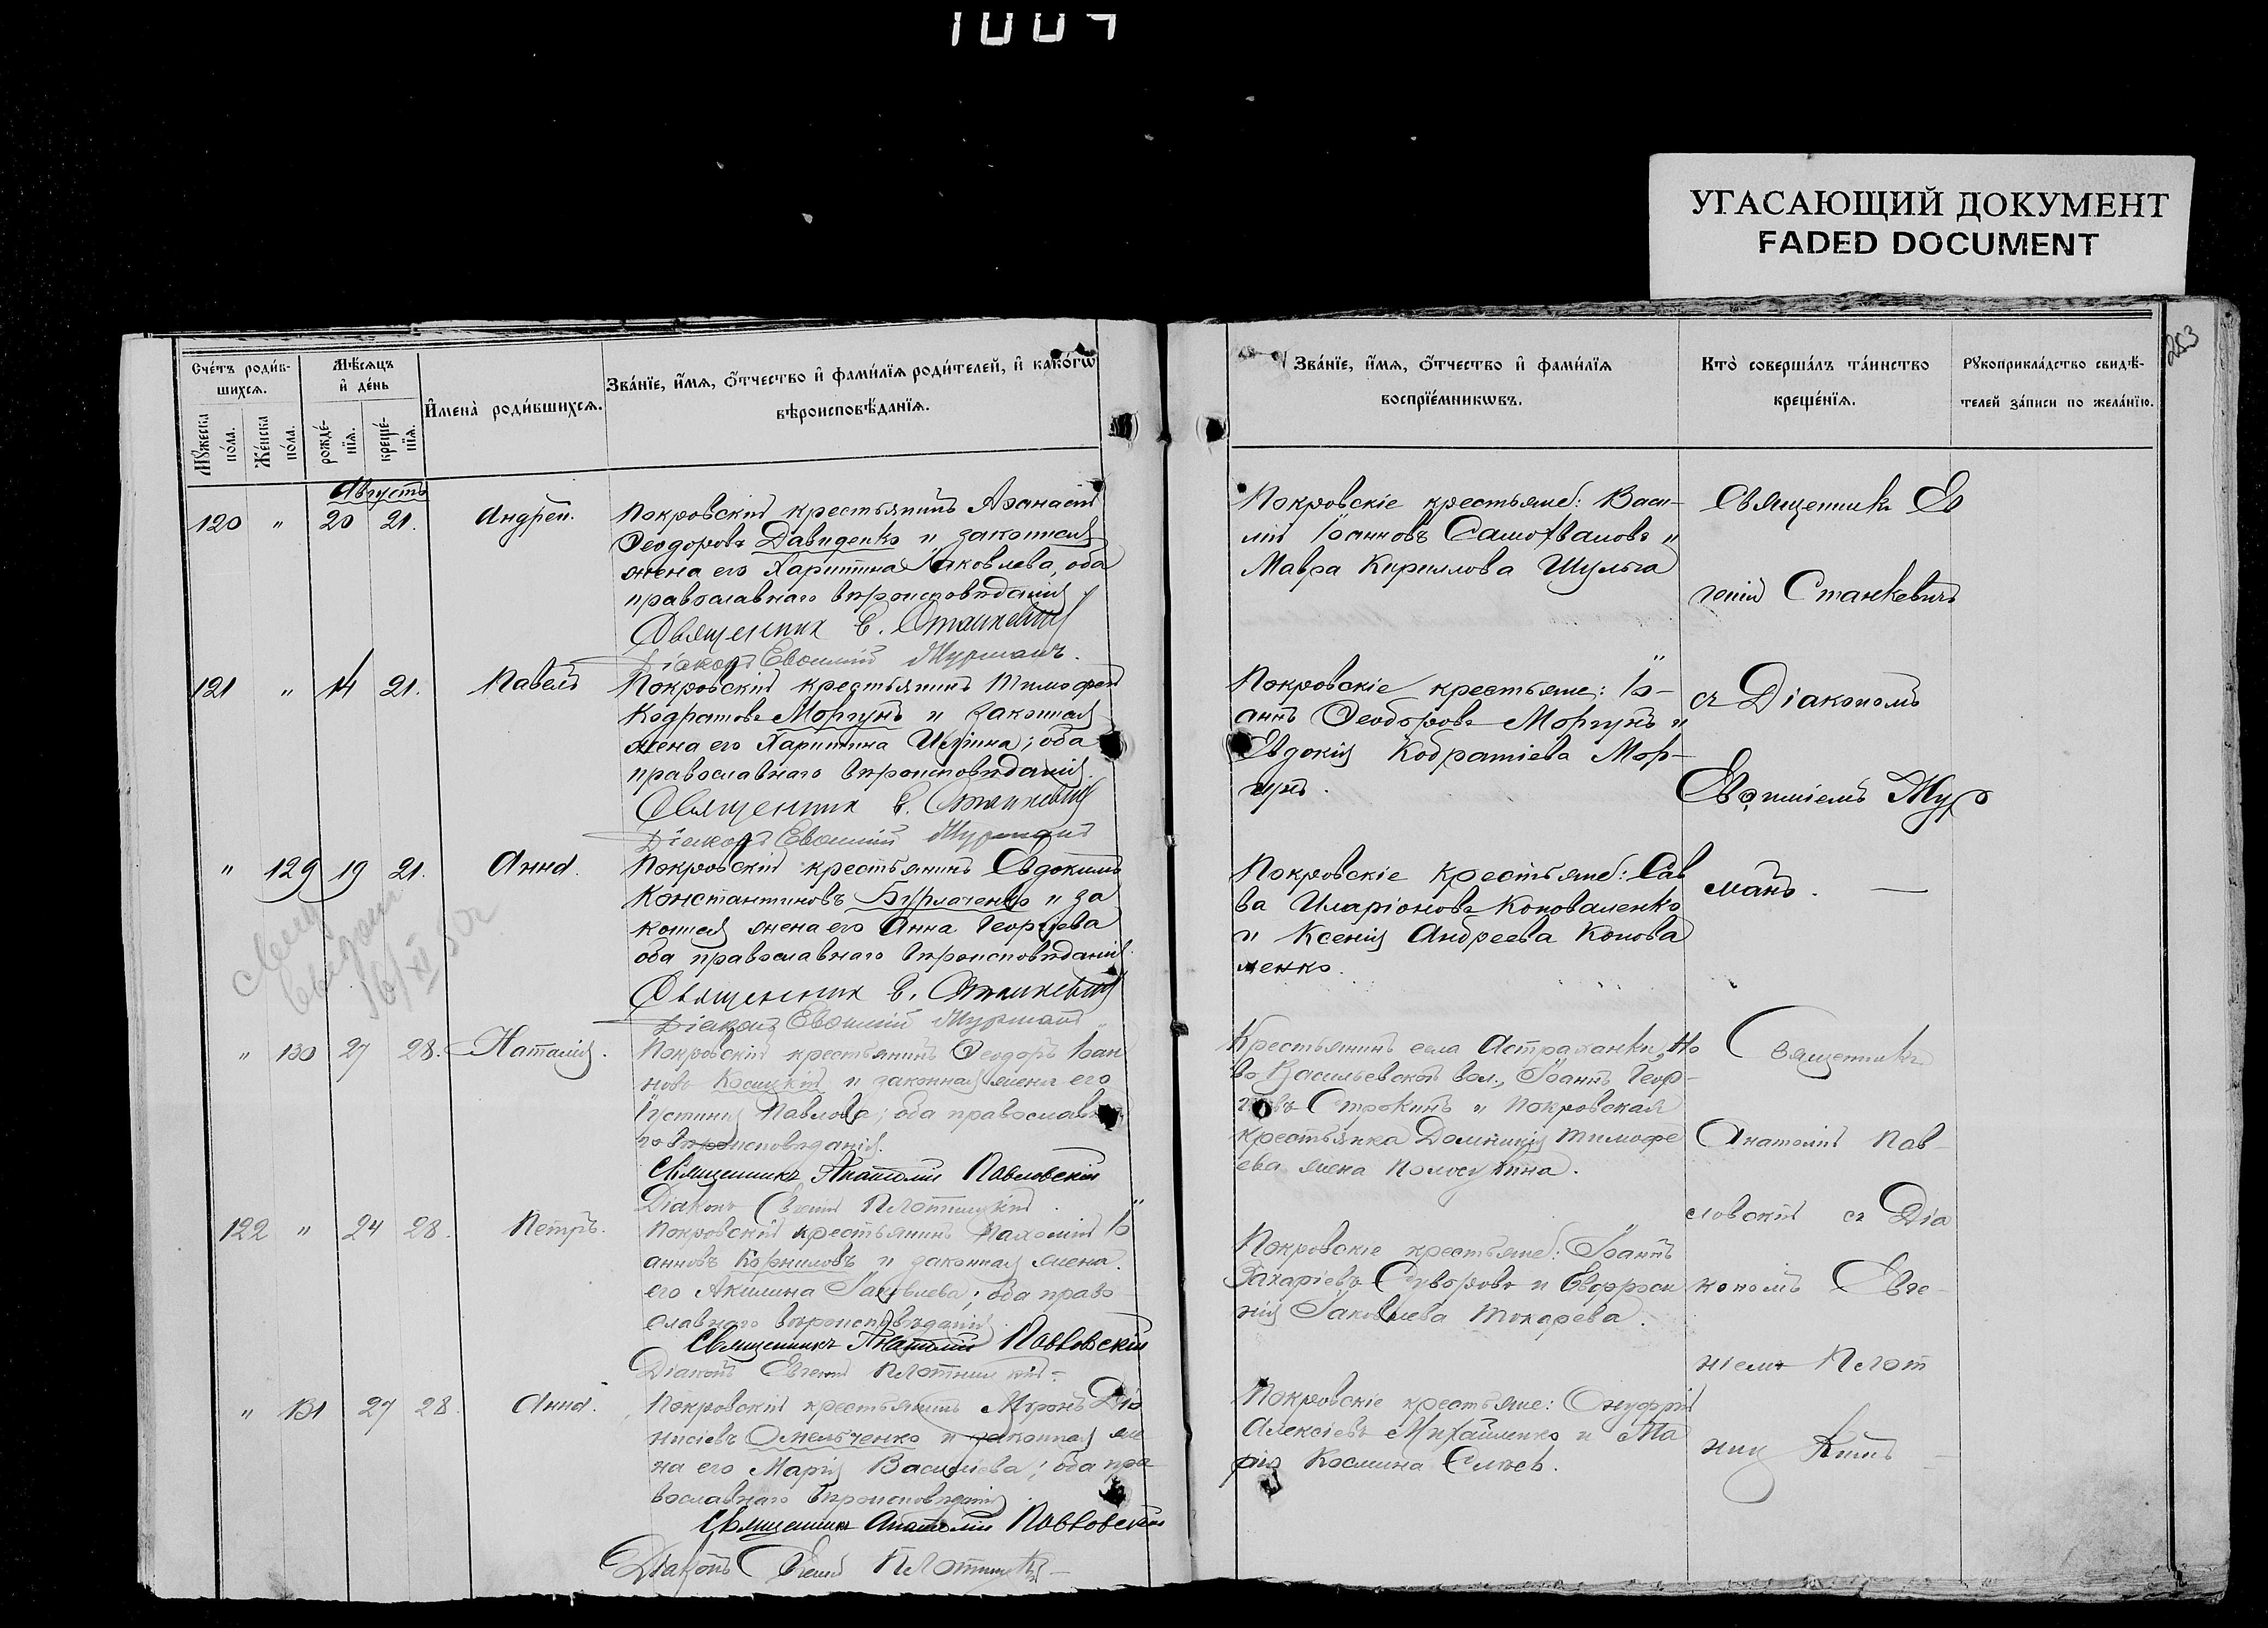 1004
УГАСАЮЩИЙ ДОКУМЕНТ
FADED DOCUMENT
253
Сче́тъ роди́в-
шихсѧ.
Мꙋ́жеска по́ла.
Же́нска по́ла.
Мѣ́сѧцъ и҆ де́нь
рожде́-нїѧ.
креще́-нїѧ.
И҆мена̀ роди́вшихсѧ.
Зва́нїе, и҆́мѧ, ѻ҆́тчество и҆ фами́лїѧ роди́телей, и҆ како́гѡ
вѣроисповѣ́данїѧ.
Зва́нїе, и҆́мѧ, ѻ҆́тчество и҆ фами́лїѧ
воспрїе́мникѡвъ.
Кто̀ соверша́лъ та́инство
креще́нїѧ.
Рꙋкоприкла́дство свидѣ́-
телей за́писи по жела́нїю.
Августъ
120 " 20 21. Андрей.
Покровскій крестьянинъ Аѳанасій
Ѳеодоровъ Давиденко и законная
жена его Харитина Іаковлева, оба
православнаго вѣроисповѣданія.
Священник Е. Станкевич
Діаконъ Евѳимій Мурманъ.
Покровскіе крестьяне: Васи-
лій Іоанновъ Самохваловъ и
Мавра Кириллова Шульга
Священникъ Ев
геній Станкевичъ
121 " 14 21. Павелъ
Покровскій крестьянинъ Тимофей
Кодратовъ Моргунъ и законная
жена его Харитина; оба
православнаго вѣроисповѣданія.
Священник Е. Станкевич
Діаконъ Евѳимій Мурманъ
Покровскіе крестьяне: Іо-
аннъ Ѳеодоровъ Моргунъ и
Евдокія Кодратіева Мор-
гунъ.
съ Діакономъ
Евѳиміемъ Мур
маномъ. —
" 129 19 21. Анна.
Покровскій крестьянинъ Евдокимъ
Константиновъ Бурлаченко и за
конная жена его Анна Георгіева
оба православнаго вѣроисповѣданія.
Священник Е. Станкевич
Діаконъ Евѳимій Мурманъ
Покровскіе крестьяне: Сав
ва Иларіоновъ Коноваленко
и Ксенія Андреева Конова
ленко.
16/XI
" 130 27 28. Наталія.
Покровскій крестьянинъ Ѳеодоръ Іоан
новъ и законная жена его
Іустинія Павлова; оба православна
го вѣроисповѣданія.
Священникъ Анатолій Павловскій
Діаконъ Евгеній Плотницкій
Крестьянинъ села Астраханки, Но
во Васильевской вол., Іоаннъ Геор-
гіевъ Строкинъ и Покровская
крестьянка Домникія Тимофе
ева жена
Священникъ
Анатолій Пав-
ловскій съ Діа
кономъ Евге-
ніемъ Плот
ниц
122 " 24 28. Петръ.
Покровскій крестьянинъ Пахомій Іо
анновъ Корниловъ и законная жена
его Акилина Іаковлева; оба право
славнаго вѣроисповѣданія
Священникъ Анатолій Павловскій
Діаконъ Евгеній Плотницкій
Покровскіе крестьяне: Іоаннъ
Захаріевъ Суворовъ и Евфроси
нія Іаковлева Токарева.
" 131 27 28. Анна.
Покровскій крестьянинъ Миронъ Діо
нисіевъ Омельченко и законная же
на его Марія Василіева; оба пра
вославнаго вѣроисповѣданія
Священникъ Анатолій Павловскій
Діаконъ Евгеній Плотницкій
Покровскіе крестьяне: Онуфрій
Алексіевъ Михайленко и Ма
рія Космина